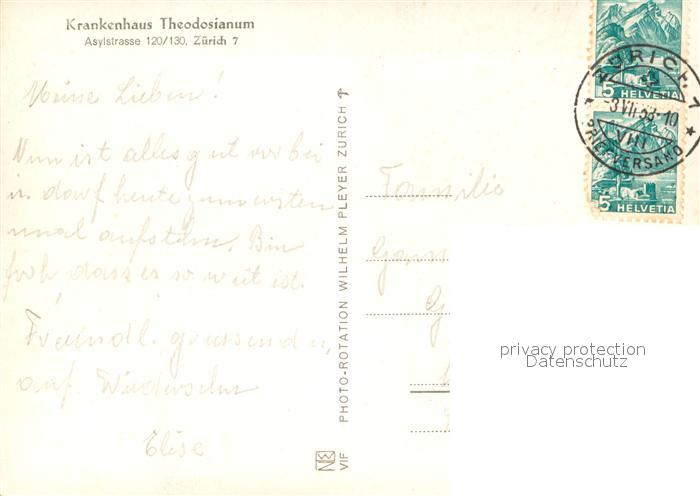 Krankenhaus Theodosianum
Asylstrasse 120/130, Zürich 7
Meine Lieben!
Nun ist alles gut vorbei
u. darf heute zum ersten
mal aufstehn. Bin
froh dass es so weit ist.
Freundl. grüssend u.
auf Wiedersehn
Elise
VIF PHOTO-ROTATION WILHELM PLEYER ZÜRICH
Familie
5 HELVETIA
5 HELVETIA
ZÜRICH 7
-3.VII.53-10
VIII
BRIEFVERSAND
privacy protection
Datenschutz